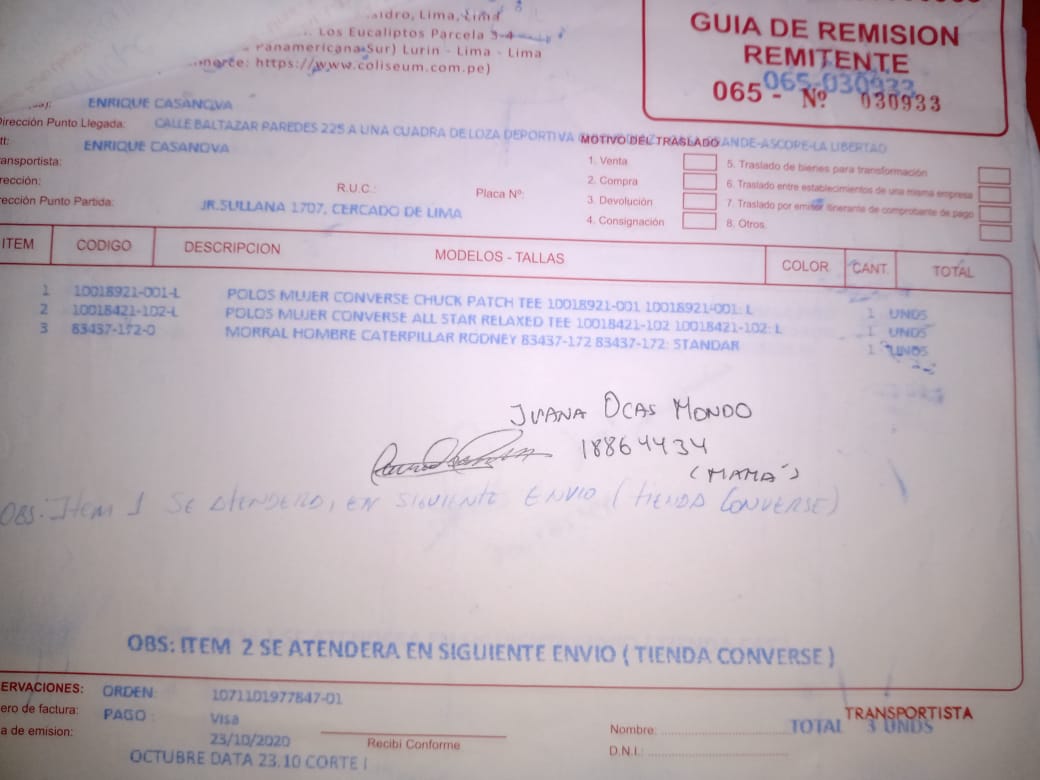 Lima, Lima
Los Eucaliptos Parcela 3-4
Panamericana Sur) Lurin - Lima - Lima
https://www.coliseum.com.pe)
GUIA DE REMISION
REMITENTE
065-030933
065 - Nº 030933
ENRIQUE CASANOVA
Dirección Punto Llegada: CALLE BALTAZAR PAREDES 225 A UNA CUADRA DE LOZA DEPORTIVA ANDE-ASCOPE-LA LIBERTAD
ENRIQUE CASANOVA
MOTIVO DEL TRASLADO
1. Venta
2. Compra
3. Devolución
4. Consignación
5. Traslado de bienes para transformación
6. Traslado entre establecimientos de una misma empresa
7. Traslado por emisor itinerante de comprobante de pago
8. Otros
ansportista:
rección: R.U.C.: Placa Nº:
rección Punto Partida: JR.SULLANA 1707, CERCADO DE LIMA
ITEM CODIGO DESCRIPCION MODELOS - TALLAS COLOR CANT. TOTAL
1 10018921-001-L POLOS MUJER CONVERSE CHUCK PATCH TEE 10018921-001 10018921-001: L 1 UNDS
2 10018421-102-L POLOS MUJER CONVERSE ALL STAR RELAXED TEE 10018421-102 10018421-102: L 1 UNDS
3 83437-172-0 MORRAL HOMBRE CATERPILLAR RODNEY 83437-172 83437-172: STANDAR 1 UNDS
JUANA OCAS MONDO
18864434
(MAMÁ)
OBS: Item 1 SE ATENDERA, EN SIGUIENTE ENVIO (TIENDA CONVERSE)
OBS: ITEM 2 SE ATENDERA EN SIGUIENTE ENVIO ( TIENDA CONVERSE )
ERVACIONES: ORDEN: 1071101977847-01
ero de factura: PAGO : Visa
a de emision: 23/10/2020
OCTUBRE DATA 23.10 CORTE I
Recibi Conforme
TRANSPORTISTA
Nombre:
TOTAL 3 UNDS
D.N.I.: